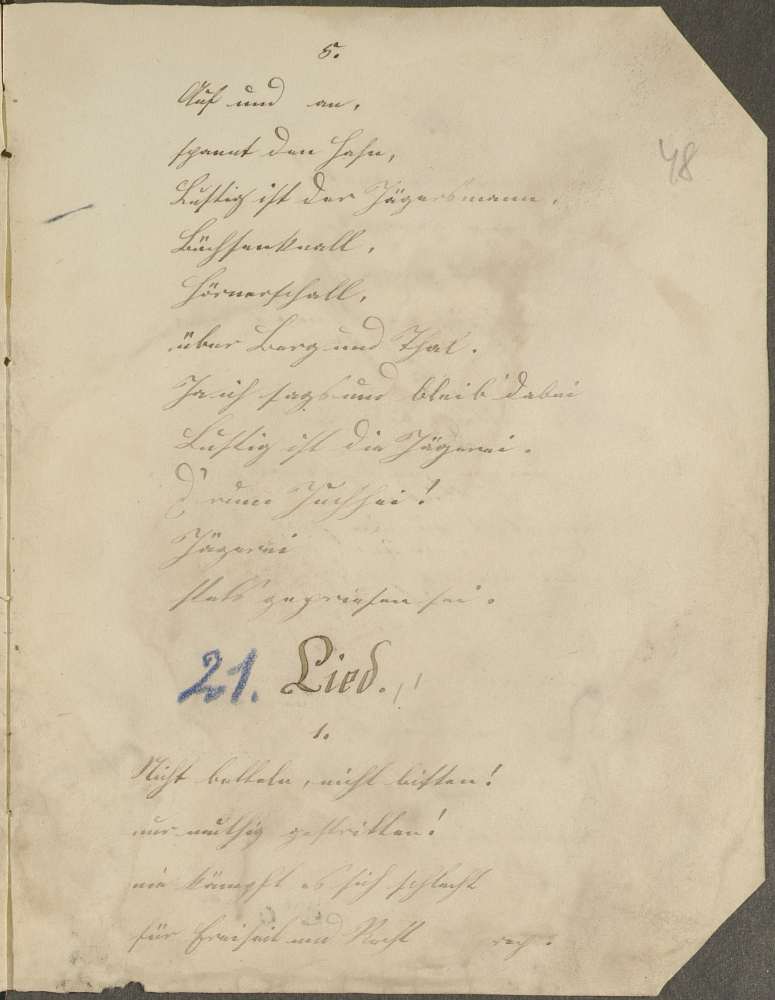 5.
Auf und an,
spannt den Hahn,
48
Lustig ist der Jägersmann,
Büchsenknall,
Hörnerschall,
über Berg und Thal.
Ja ich sags und bleib dabei
Lustig ist die Jägerei.
D'rum Juchhei!
Jägerei
stets gepriesen sei.
21. Lied.
1.
Nicht betteln, nicht bitten!
nur muthig gestritten!
nie kämpft es sich schlecht
für Freiheit und Recht